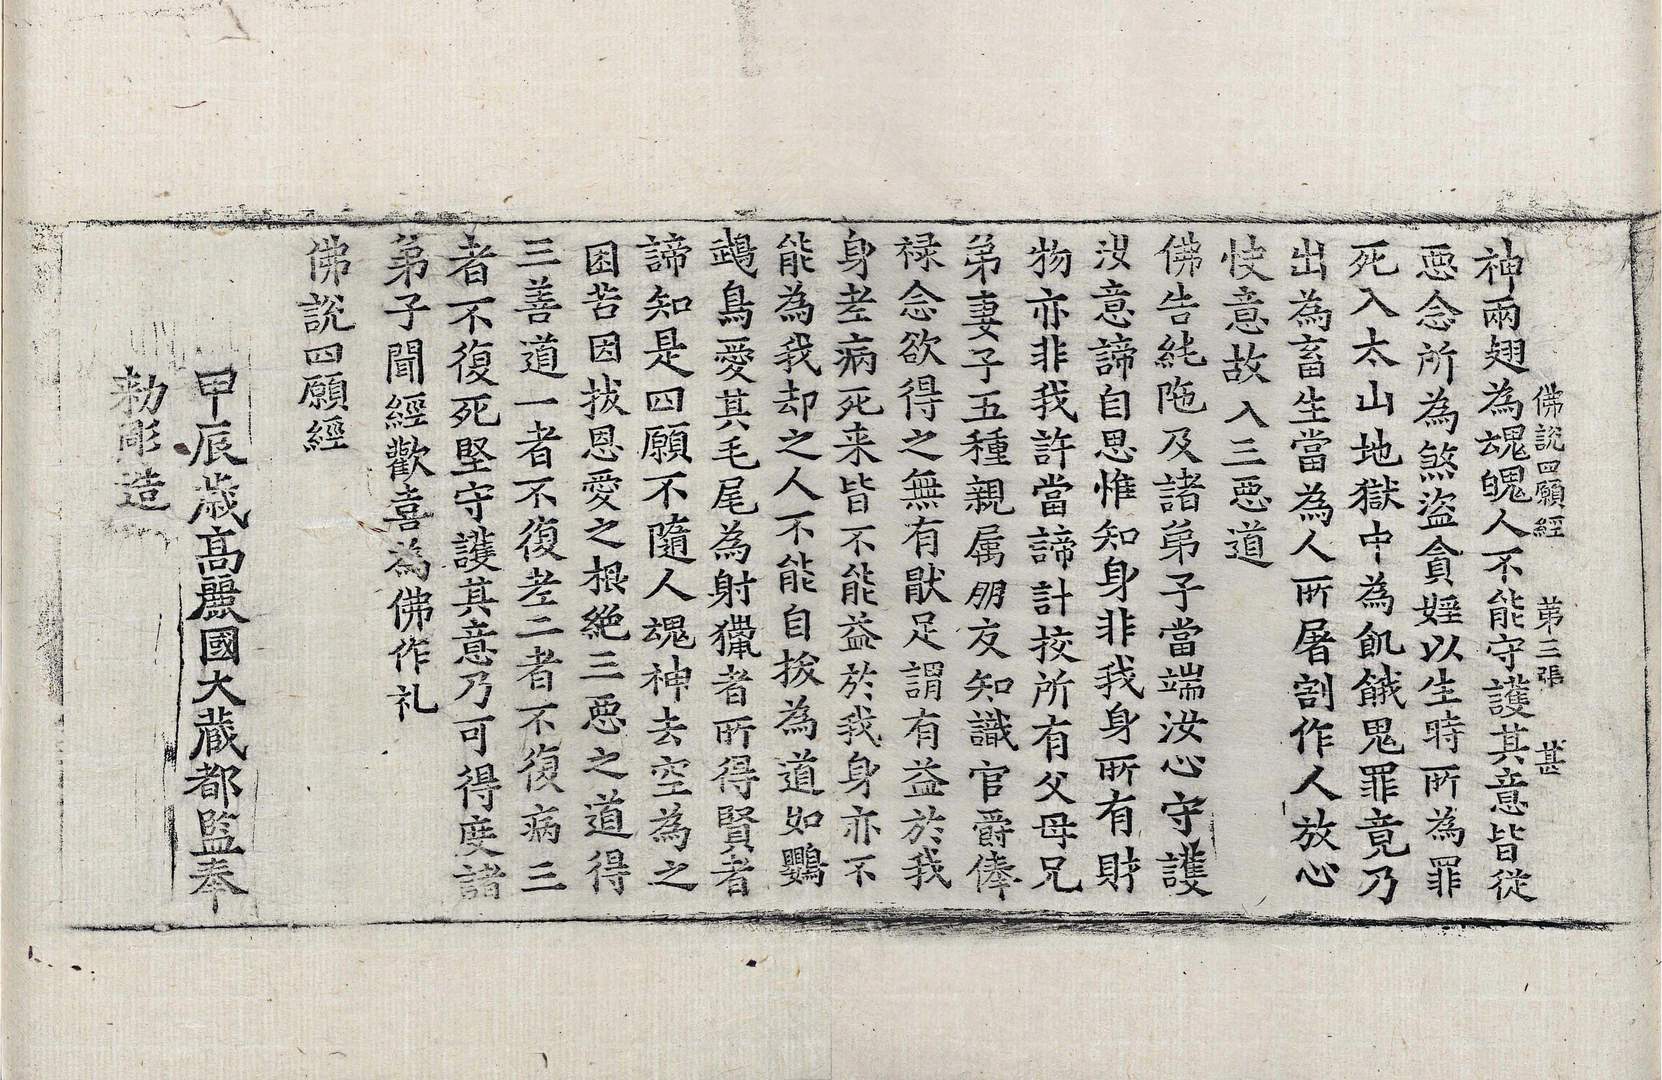 佛說四願經 第三張 甚
神兩翅為魂魄人不能守護其意皆從
惡念所為煞盜貪婬以生時所為罪
死入太山地獄中為飢餓鬼罪竟乃
出為畜生當為人所屠割作人放心
快意故入三惡道
佛告純陁及諸弟子當端汝心守護
汝意諦自思惟知身非我身所有財
物亦非我許當諦計挍所有父母兄
弟妻子五種親属朋友知識官爵俸
祿念欲得之無有猒足謂有益於我
身老病死来皆不能益於我身亦不
能為我却之人不能自拔為道如鸚
鵡鳥愛其毛尾為射獵者所得賢者
諦知是四願不隨人魂神去空為之
困苦因拔恩愛之根絶三惡之道得
三善道一者不復老二者不復病三
者不復死堅守護其意乃可得度諸
弟子聞經歡喜為佛作礼
佛說四願經
甲辰歳高麗國大藏都監奉
勑彫造